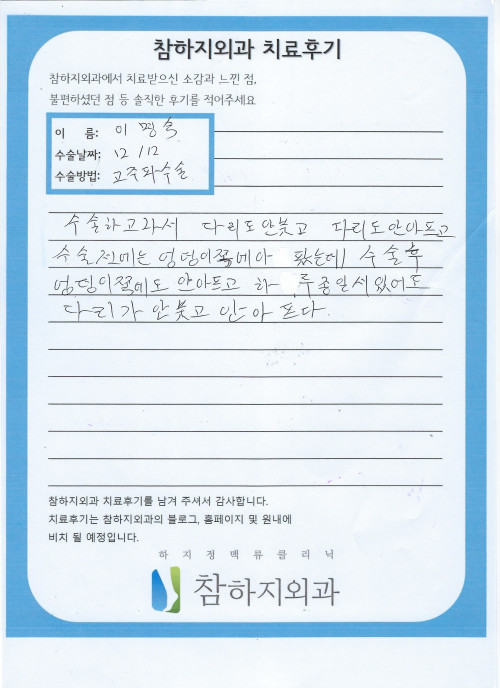 참하지외과 치료후기
참하지외과에서 치료받으신 소감과 느낀 점,
불편하셨던 점 등 솔직한 후기를 적어주세요
이 름: 이명숙
수술날짜: 12/12
수술방법: 고주파수술
수술하고라서 다리도안붓고 다리도안아프고
수술전에는 엉덩이쪽에아 팠는데 수술후
엉덩이쪽에도 안아프고 하 루종일서있어도
다리가 안붓고 안아 프다.
참하지외과 치료후기를 남겨 주셔서 감사합니다.
치료후기는 참하지외과의 블로그, 홈페이지 및 원내에
비치 될 예정입니다.
하지정맥류클리닉
참하지외과